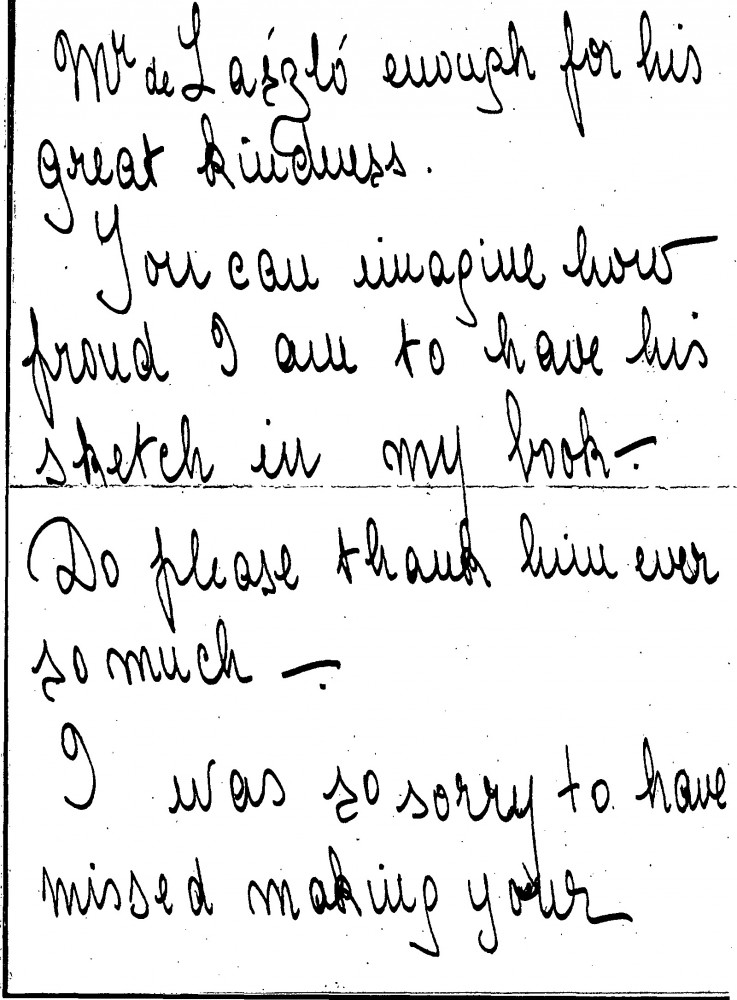 Mr de László enough for his
great kindness.
You can imagine how
proud I am to have his
sketch in my book—
Do please thank him ever
so much —
I was so sorry to have
missed making your